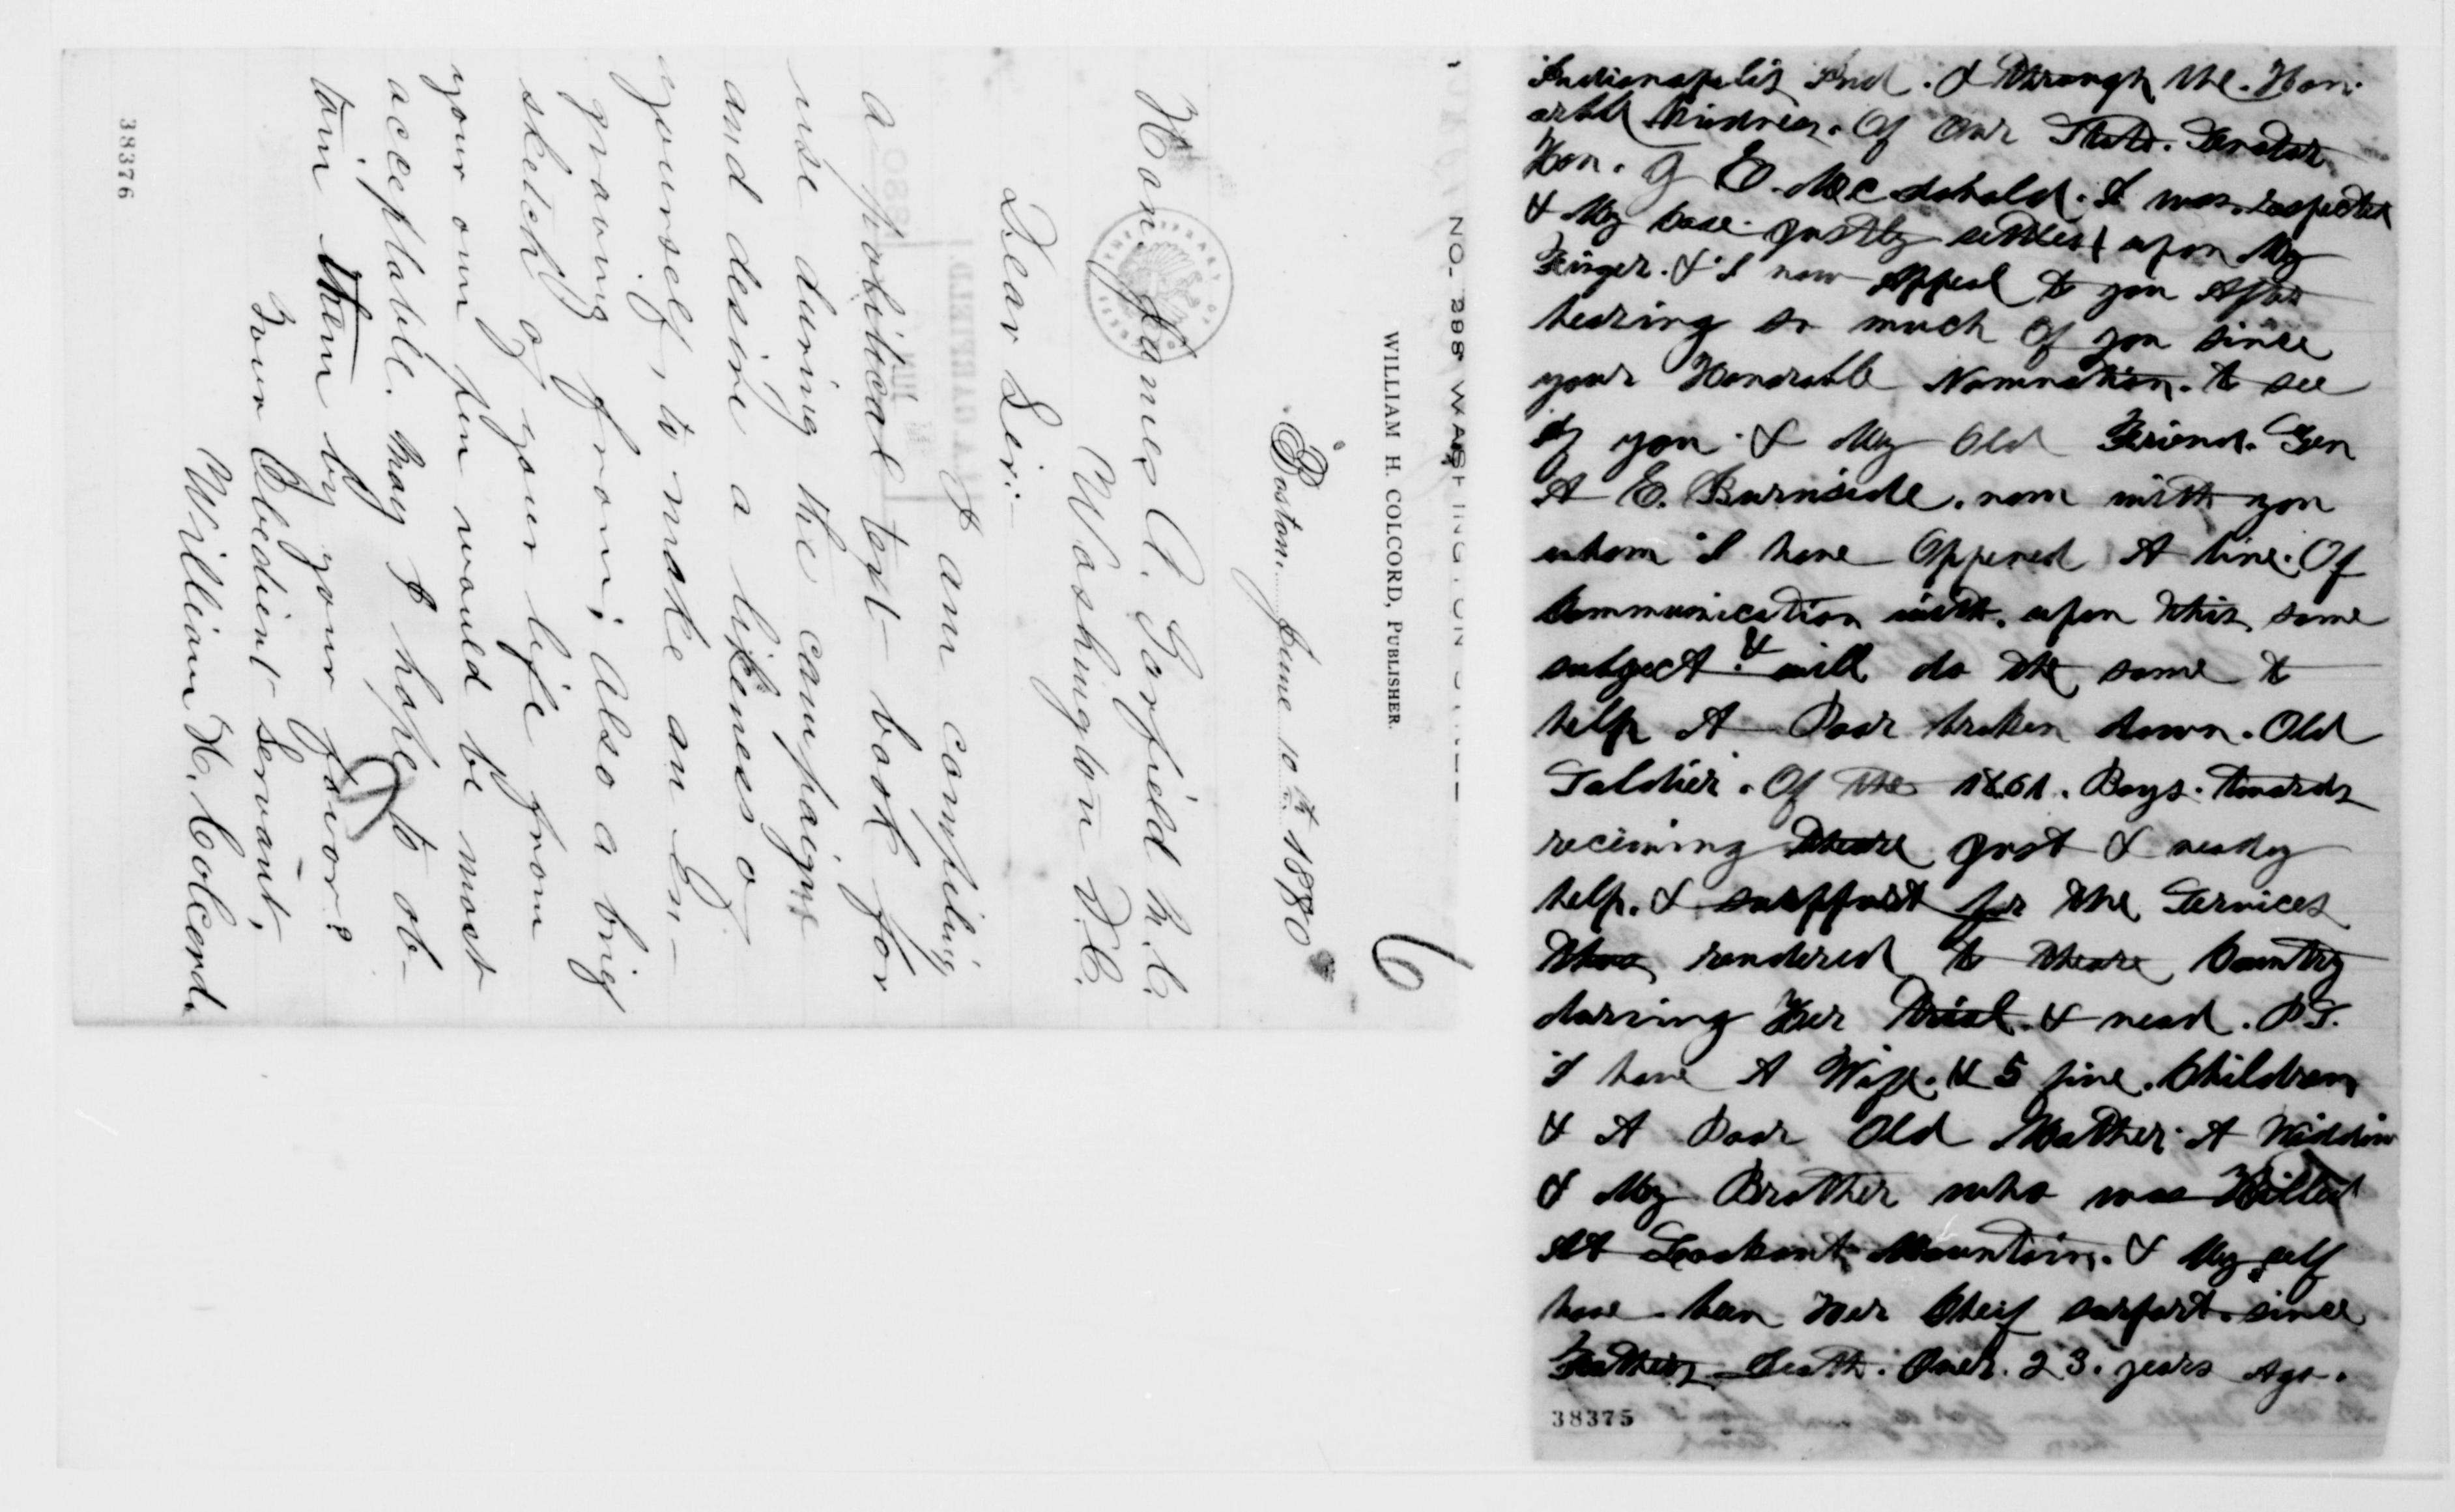 NO. 388 WASHINGTON STREET
WILLIAM H. COLCORD, PUBLISHER.
6
Boston, June 10th 1880
Hon. James A. Garfield M.C.
Washington D.C.
Dear Sir:—
I am compiling
a political text-book for
use during the campaign
and desire a likeness of
yourself, to make an En-
graving from; also a brief
sketch of your life from
your own pen would be most
acceptable. May I hope to ob-
tain them by your favor?
Your Obedient Servant,
William H. Colcord.
38376
Indianapolis Ind. & through the. Hon.
orble kindness. Of Our State. Senator
Hon. J E. Mc donald. I was. respected
& My Case justly settled upon My
Finger. & I now Appeal to you After
hearing so much Of you since
your Honorable Nomination. to see
if you. & My Old Friend. Gen
A E. Burnside. now with you
whom I have Oppened A line. Of
Communication with. upon this same
subject. & will do the same to
help A Poor broken down. Old
Soldier. Of the 1861. Boys. towards
reciving theare just & needy
help. & suppport for the Services
thus rendered to theare Country
durring Her trial. & nead. P.S.
I have A Wife. & 5 fine. Children
& A Poor Old Mother. A Widdow
& My Brother who was Killed
At Lookout Mountain. & My self
have been Her Cheif surport. since
Fathers Death. Over. 23. years Ago.
38375